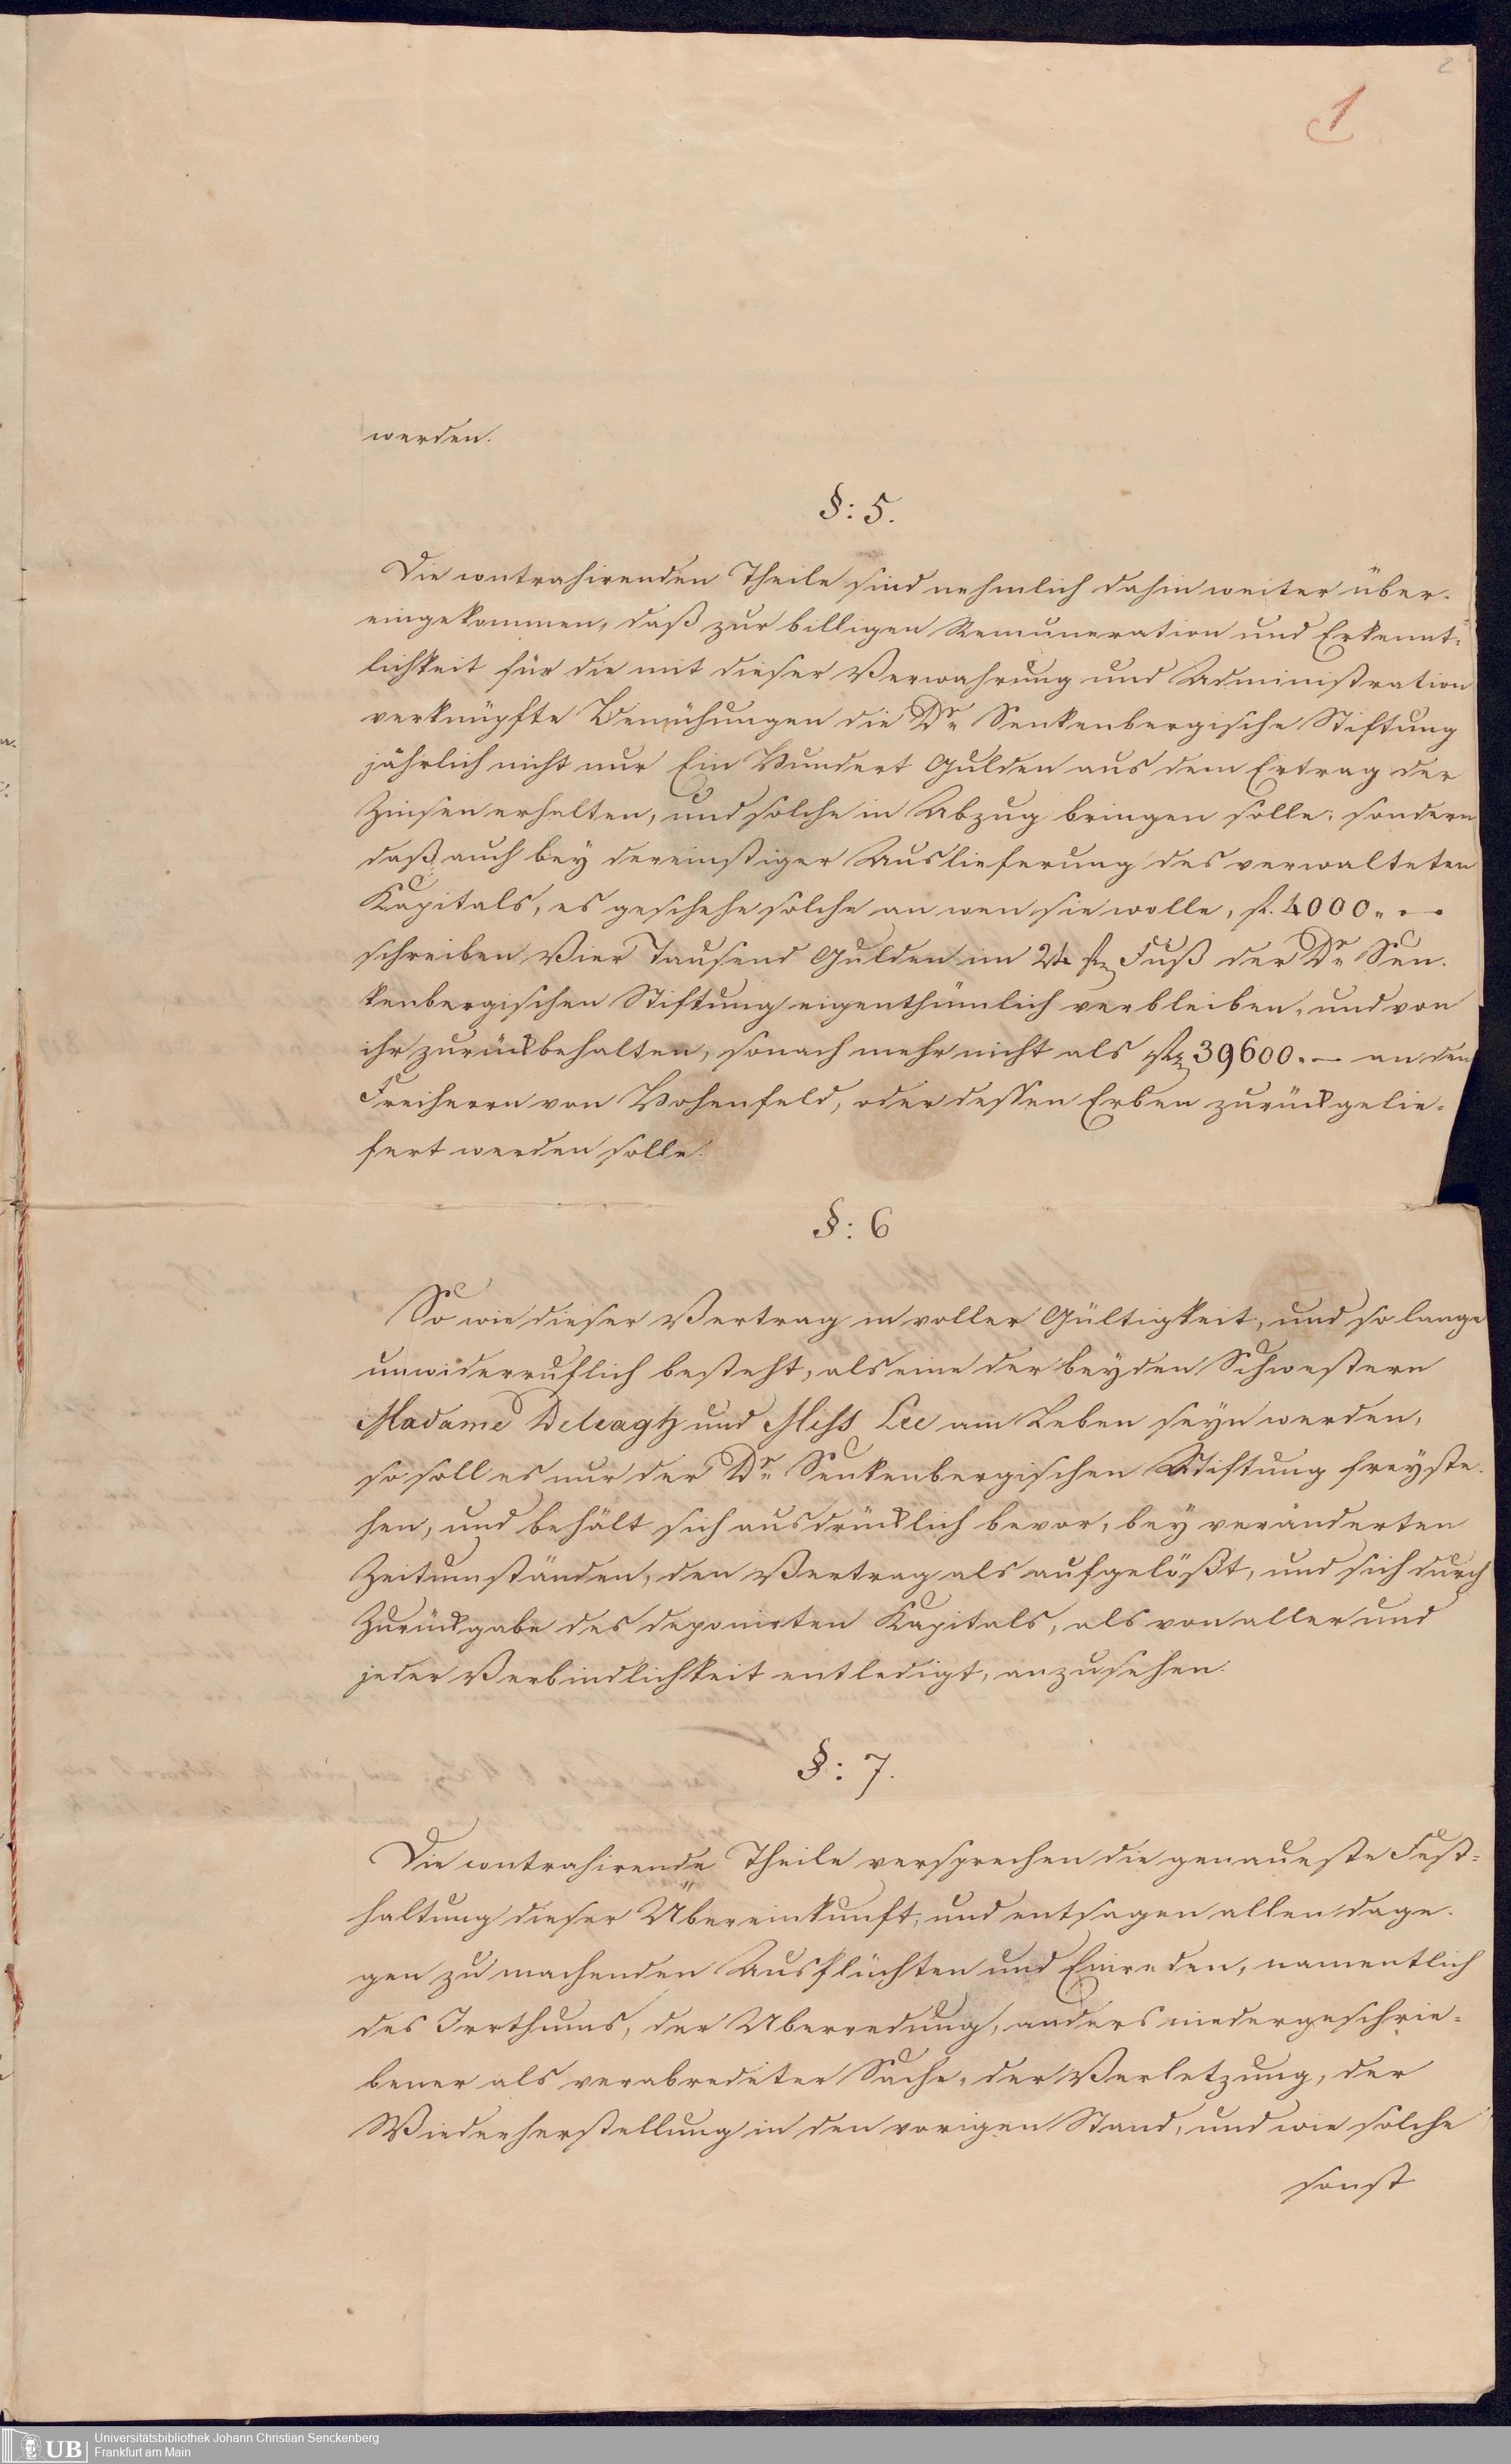 2
1
werden.
§: 5.
Die contrahirenden Theile sind nehmlich dahin weiter über-
eingekommen, daß zur billigen Remuneration und Erkennt-
lichkeit für die mit dieser Verwahrung und Administration
verknüpfte Bemühungen die Dr. Senkenbergische Stiftung
jährlich nicht nur Ein Hundert Gulden aus dem Ertrag der
Zinsen erhalten, und solche in Abzug bringen solle; sondern
daß auch bey dereinstiger Auslieferung des verwalteten
Kapitals, es geschehe solche an wen sie wolle, fl. 4000. –
schreiben Vier Tausend Gulden im 24 fl. Fuß der Dr. Sen-
kenbergischen Stiftung eigenthümlich verbleiben, und von
ihr zurückbehalten, sonach mehr nicht als fl. 39600. – an den
Freiherrn von Hohenfeld, oder dessen Erben zurückgelie-
fert werden solle.
§: 6
So wie dieser Vertrag in voller Gültigkeit, und so lange
unwiderruflich besteht, als eine der beyden Schwestern
Madame Deleagtz und Miss Lee am Leben seyn werden,
so soll es nur der Dr. Senkenbergischen Stiftung freyste-
hen, und behält sich ausdrücklich bevor, bey veränderten
Zeitumständen, den Vertrag als aufgelößt, und sich durch
Zurückgabe des deponirten Kapitals, als von aller und
jeder Verbindlichkeit entledigt, anzusehen.
§: 7.
Die contrahirende Theile versprechen die genaueste Fest-
haltung dieser Übereinkunft, und entsagen allen dage-
gen zu machenden Ausflüchten und Einreden, namentlich
des Irrthums, der Uberredung, anders niedergeschrie-
bener als verabredeter Sache, der Verletzung, der
Wiederherstellung in den vorigen Stand, und wie solche
sonst
UB
Universitätsbibliothek Johann Christian Senckenberg
Frankfurt am Main